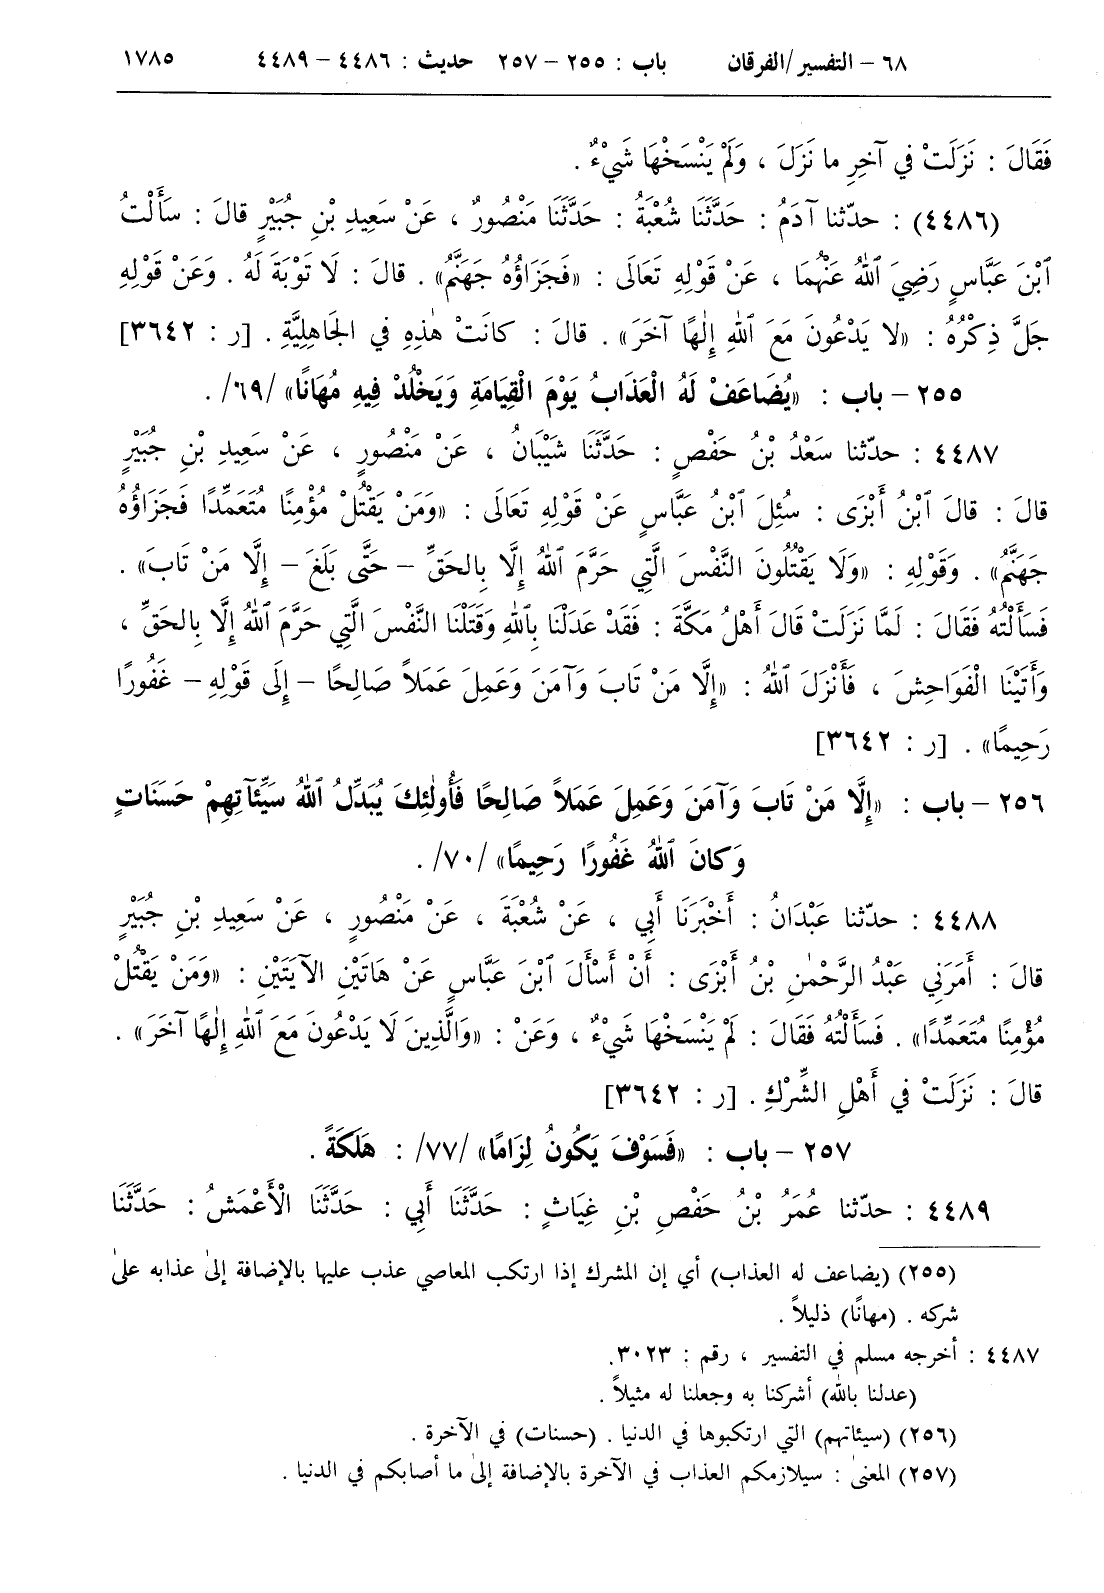 ٦٨ – التفسير/الفرقان باب : ٢٥٥ – ٢٥٧ حديث : ٤٤٨٦ – ٤٤٨٩ ١٧٨٥
فَقَالَ : نَزَلَتْ في آخِرِ ما نَزَلَ ، وَلَمْ يَنْسَخْهَا شَيْءٌ .
(٤٤٨٦) : حدّثنا آدَمُ : حَدَّثَنَا شُعْبَةُ : حَدَّثَنَا مَنْصُورٌ ، عَنْ سَعِيدِ بْنِ جُبَيْرٍ قالَ : سَأَلْتُ
ٱبْنَ عَبَّاسٍ رَضِيَ ٱللهُ عَنْهُمَا ، عَنْ قَوْلِهِ تَعَالَى : «فَجَزَاؤُهُ جَهَنَّمُ» . قالَ : لَا تَوْبَةَ لَهُ . وَعَنْ قَوْلِهِ
جَلَّ ذِكْرُهُ : «لا يَدْعُونَ مَعَ ٱللهِ إِلٰهًا آخَرَ» . قالَ : كانَتْ هٰذِهِ في الجَاهِلِيَّةِ . [ر : ٣٦٤٢]
٢٥٥ – باب : «يُضَاعَفْ لَهُ الْعَذَابُ يَوْمَ الْقِيَامَةِ وَيَخْلُدْ فِيهِ مُهَانًا» /٦٩/ .
٤٤٨٧ : حدّثنا سَعْدُ بْنُ حَفْصٍ : حَدَّثَنَا شَيْبَانُ ، عَنْ مَنْصُورٍ ، عَنْ سَعِيدِ بْنِ جُبَيْرٍ
قالَ : قالَ ٱبْنُ أَبْزَى : سُئِلَ ٱبْنُ عَبَّاسٍ عَنْ قَوْلِهِ تَعَالَى : «وَمَنْ يَقْتُلْ مُؤْمِنًا مُتَعَمِّدًا فَجَزَاؤُهُ
جَهَنَّمُ» . وَقَوْلِهِ : «وَلَا يَقْتُلُونَ النَّفْسَ الَّتِي حَرَّمَ ٱللهُ إِلَّا بِالحَقِّ – حَتَّى بَلَغَ – إِلَّا مَنْ تَابَ» .
فَسَأَلْتُهُ فَقَالَ : لَمَّا نَزَلَتْ قالَ أَهْلُ مَكَّةَ : فَقَدْ عَدَلْنَا بِٱللهِ وَقَتَلْنَا النَّفْسَ الَّتِي حَرَّمَ ٱللهُ إِلَّا بِالحَقِّ ،
وَأَتَيْنَا الْفَوَاحِشَ ، فَأَنْزَلَ ٱللهُ : «إِلَّا مَنْ تَابَ وَآمَنَ وَعَمِلَ عَمَلاً صَالِحًا – إِلَى قَوْلِهِ – غَفُورًا
رَحِيمًا» . [ر : ٣٦٤٢]
٢٥٦ – باب : «إِلَّا مَنْ تَابَ وَآمَنَ وَعَمِلَ عَمَلاً صَالِحًا فَأُولٰئِكَ يُبَدِّلُ ٱللهُ سَيِّئَاتِهِمْ حَسَنَاتٍ
وَكانَ ٱللهُ غَفُورًا رَحِيمًا» /٧٠/ .
٤٤٨٨ : حدّثنا عَبْدَانُ : أَخْبَرَنَا أَبِي ، عَنْ شُعْبَةَ ، عَنْ مَنْصُورٍ ، عَنْ سَعِيدِ بْنِ جُبَيْرٍ
قالَ : أَمَرَنِي عَبْدُ الرَّحْمٰنِ بْنُ أَبْزَى : أَنْ أَسْأَلَ ٱبْنَ عَبَّاسٍ عَنْ هَاتَيْنِ الآيَتَيْنِ : «وَمَنْ يَقْتُلْ
مُؤْمِنًا مُتَعَمِّدًا» . فَسَأَلْتُهُ فَقَالَ : لَمْ يَنْسَخْهَا شَيْءٌ ، وَعَنْ : «وَالَّذِينَ لَا يَدْعُونَ مَعَ ٱللهِ إِلٰهًا آخَرَ» .
قالَ : نَزَلَتْ في أَهْلِ الشِّرْكِ . [ر : ٣٦٤٢]
٢٥٧ – باب : «فَسَوْفَ يَكُونُ لِزَامًا» /٧٧/ : هَلَكَةً .
٤٤٨٩ : حدّثنا عُمَرُ بْنُ حَفْصِ بْنِ غِيَاثٍ : حَدَّثَنَا أَبِي : حَدَّثَنَا الْأَعْمَشُ : حَدَّثَنَا
(٢٥٥) (يضاعف له العذاب) أي إن المشرك إذا ارتكب المعاصي عذب عليها بالإضافة إلىٰ عذابه علىٰ
شركه . (مهانًا) ذليلاً .
٤٤٨٧ : أخرجه مسلم في التفسير ، رقم : ٣٠٢٣.
(عدلنا بالله) أشركنا به وجعلنا له مثيلاً .
(٢٥٦) (سيئاتهم) التي ارتكبوها في الدنيا . (حسنات) في الآخرة .
(٢٥٧) المعنىٰ : سيلازمكم العذاب في الآخرة بالإضافة إلىٰ ما أصابكم في الدنيا .